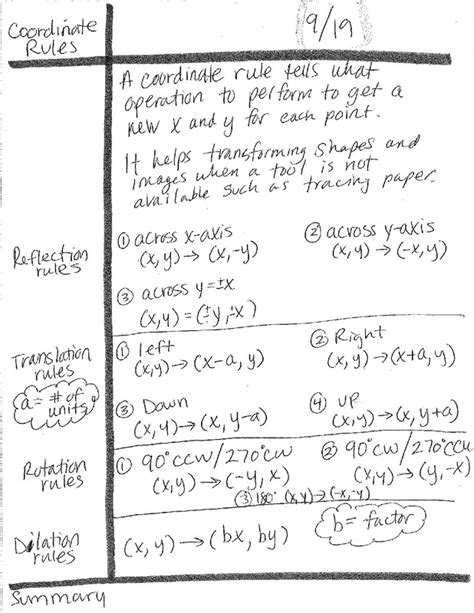 Coordinate Rules
9/19
A coordinate rule tells what
operation to perform to get a
new x and y for each point.
It helps transforming shapes and
images when a tool is not
available such as tracing paper.
Reflection rules
① across x-axis
(x,y) → (x,-y)
② across y-axis
(x,y) → (-x,y)
③ across y=±x
(x,y) = (±y,±x)
Translation rules
a = # of units
① left
(x,y) → (x-a, y)
② Right
(x,y) → (x+a, y)
③ Down
(x,y) → (x, y-a)
④ UP
(x,y) → (x, y+a)
Rotation rules
① 90°CCW/270°CW
(x,y) → (-y, x)
② 90°CW/270°CCW
(x,y) → (y,-x)
③ 180° (x,y) → (-x,-y)
Dilation rules
(x,y) → (bx, by)
b = factor
Summary